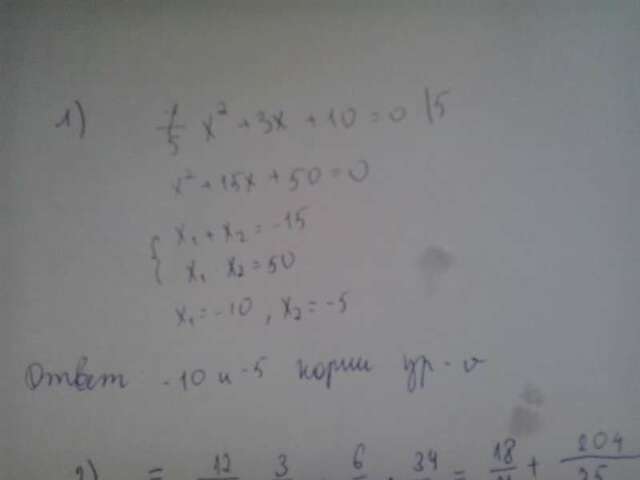 1) 1/5 x² + 3x + 10 = 0 |5
x² + 15x + 50 = 0
{ x₁ + x₂ = -15
x₁ x₂ = 50
x₁ = -10, x₂ = -5
Ответ: -10 и -5 корни ур-я
2) = 12 3 6 34 = 18 + 204